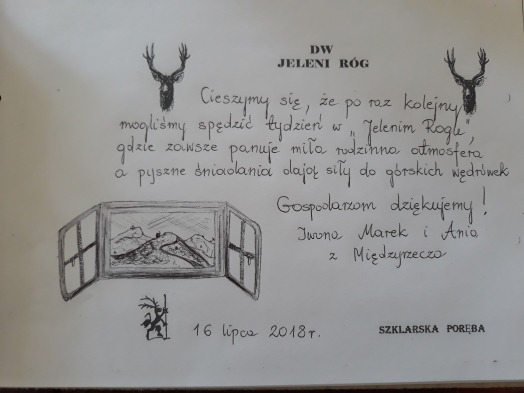 DW
JELENI RÓG
Cieszymy się, że po raz kolejny
mogliśmy spędzić tydzień w „Jelenim Rogu",
gdzie zawsze panuje miła rodzinna atmosfera
a pyszne śniadania dają siły do górskich wędrówek
Gospodarzom dziękujemy!
Iwona Marek i Ania
z Międzyrzecza
16 lipca 2018r.
SZKLARSKA PORĘBA